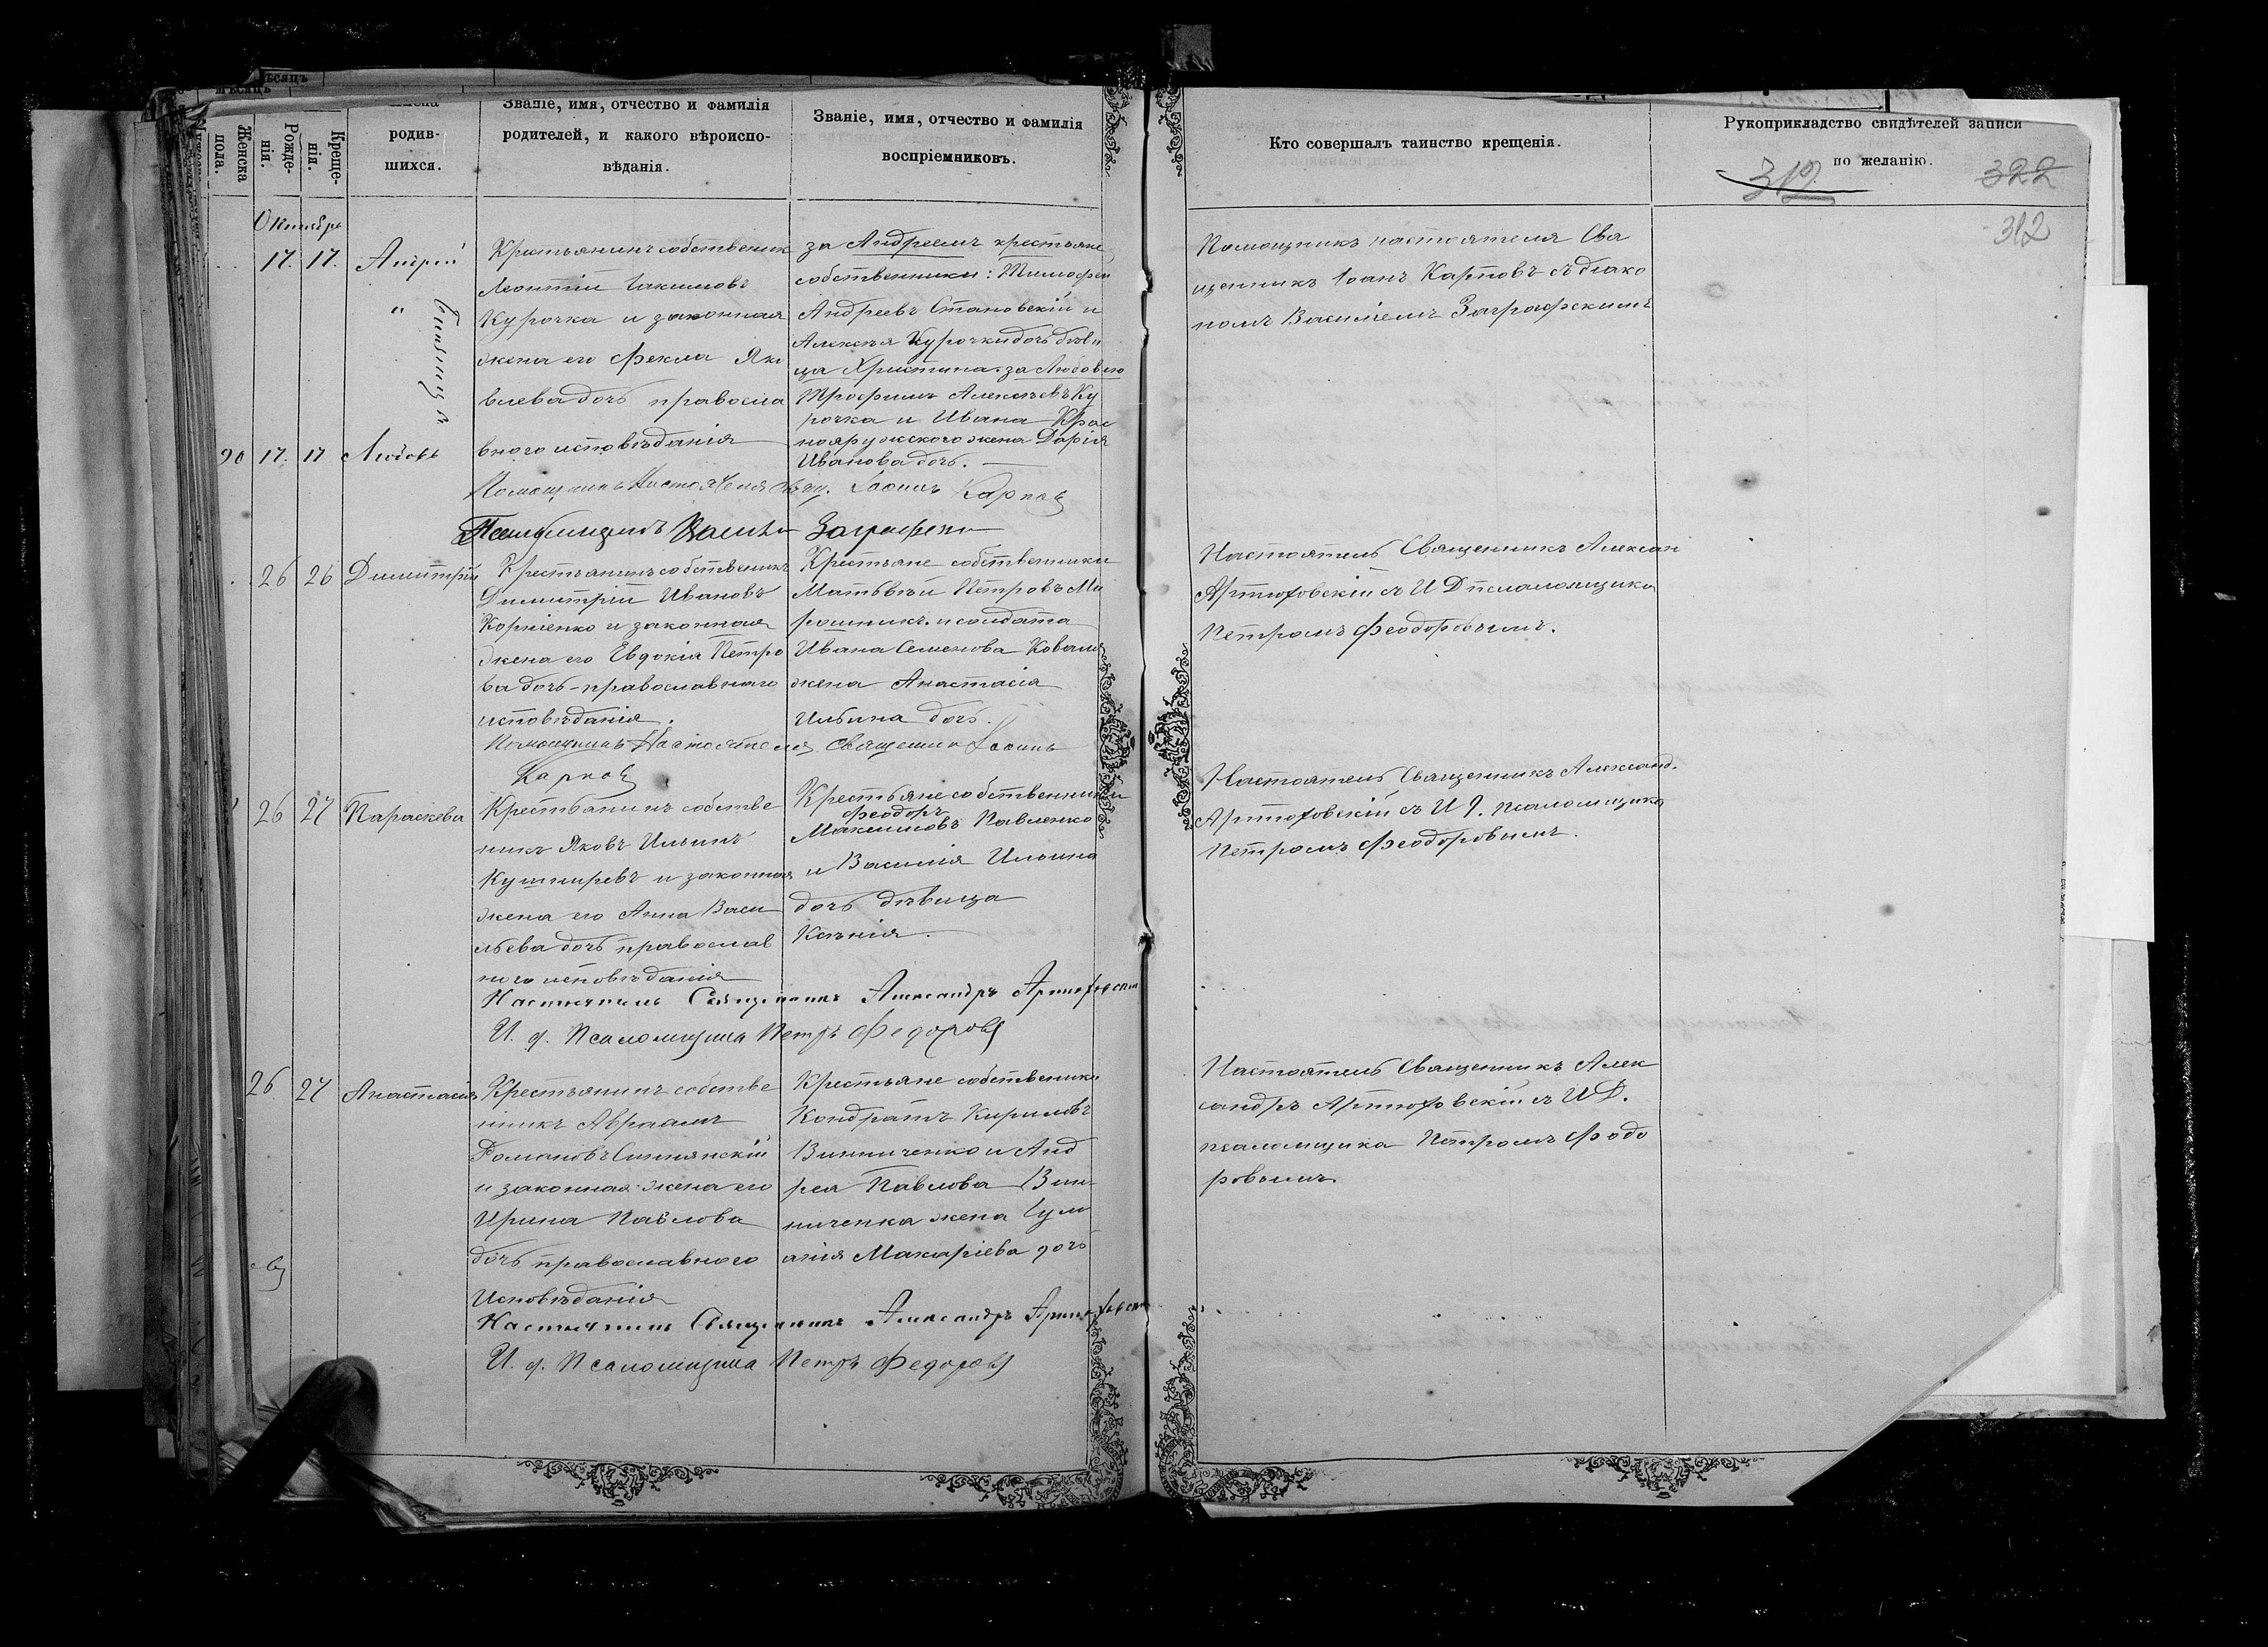 мѣсяцъ
Женска
пола.
Рожде-
нія.
Креще-
нія.
родив-
шихся.
Званіе, имя, отчество и фамилія
родителей, и какого вѣроиспо-
вѣданія.
Званіе, имя, отчество и фамилія
воспріемниковъ.
Октябрь
17. 17. Андрей
"
близнецы
Крестьянинъ собственник
Леонтій Іакимовъ
Курочка и законная
жена его Фекла Яко
влева дочь правосла
внаго исповѣданія
за Андреемъ крестьяне
собственники: Тимофей
Андреевъ Становскій и
Алексѣя Курочки дочь дѣви
ца Христина. за Любовью
Трофимъ Алексѣевъ Ку
рочка и Ивана Крас
нояружскаго жена Дарія
Иванова дочь.
90 17. 17 Любовь
Помощникъ Настоятеля Свящ. Іоаннъ Карповъ
26 26 Димитрій
Крестьянинъ собственникъ
Димитрій Ивановъ
Корніенко и законная
жена его Евдокія Петро
ва дочь - православнаго
исповѣданія.
Крестьяне собственники
Матвѣй Петровъ Ми
рошник. и солдата
Ивана Семенова Коваля
жена Анастасія
Ильина дочь.
Помощникъ Настоятеля Священник Іоаннъ
Карповъ
26 27 Параскева
Крестьянинъ собстве
никъ Яковъ Ильинъ
Кушниревъ и законная
жена его Анна Васи
льева дочь православ
наго исповѣданія
Крестьяне собственники
Феодоръ
Максимовъ Павленко
и Василія Ильина
дочь дѣвица
Ксенія.
Настоятель Священникъ Александръ Артюховскій
И. д. Псаломщика Петръ Федоровъ
26 27 Анастасія
Крестьянинъ собстве
никъ Авраамъ
Романовъ Синянскій
и законная жена его
Ирина Павлова
дочь православнаго
Исповѣданія
Крестьяне собственики
Кондратъ Кириловъ
Винниченко и Анд
рея Павлова Вин-
ниченка жена Іули
анія Макаріева дочь
Настоятель Священникъ Александръ Артюховскій
И. д. Псаломщика Петръ Федоровъ
Кто совершалъ таинство крещенія.
Рукоприкладство свидѣтелей записи
по желанію.
322
312
Помощникъ настоятеля Свя
щенникъ Іоанъ Карповъ съ діако
номъ Василіемъ Заграфскимъ
Настоятель Священникъ Алексан
Артюховскій съ И Д псаломщика
Петромъ Феодоровымъ.
Настоятель Священникъ Александ.
Артюховскій съ И Д. псаломщика
Петромъ Феодоровымъ.
Настоятель Священникъ Алек
сандръ Артюховскій съ И Д.
псаломщика Петромъ Федо
ровымъ.